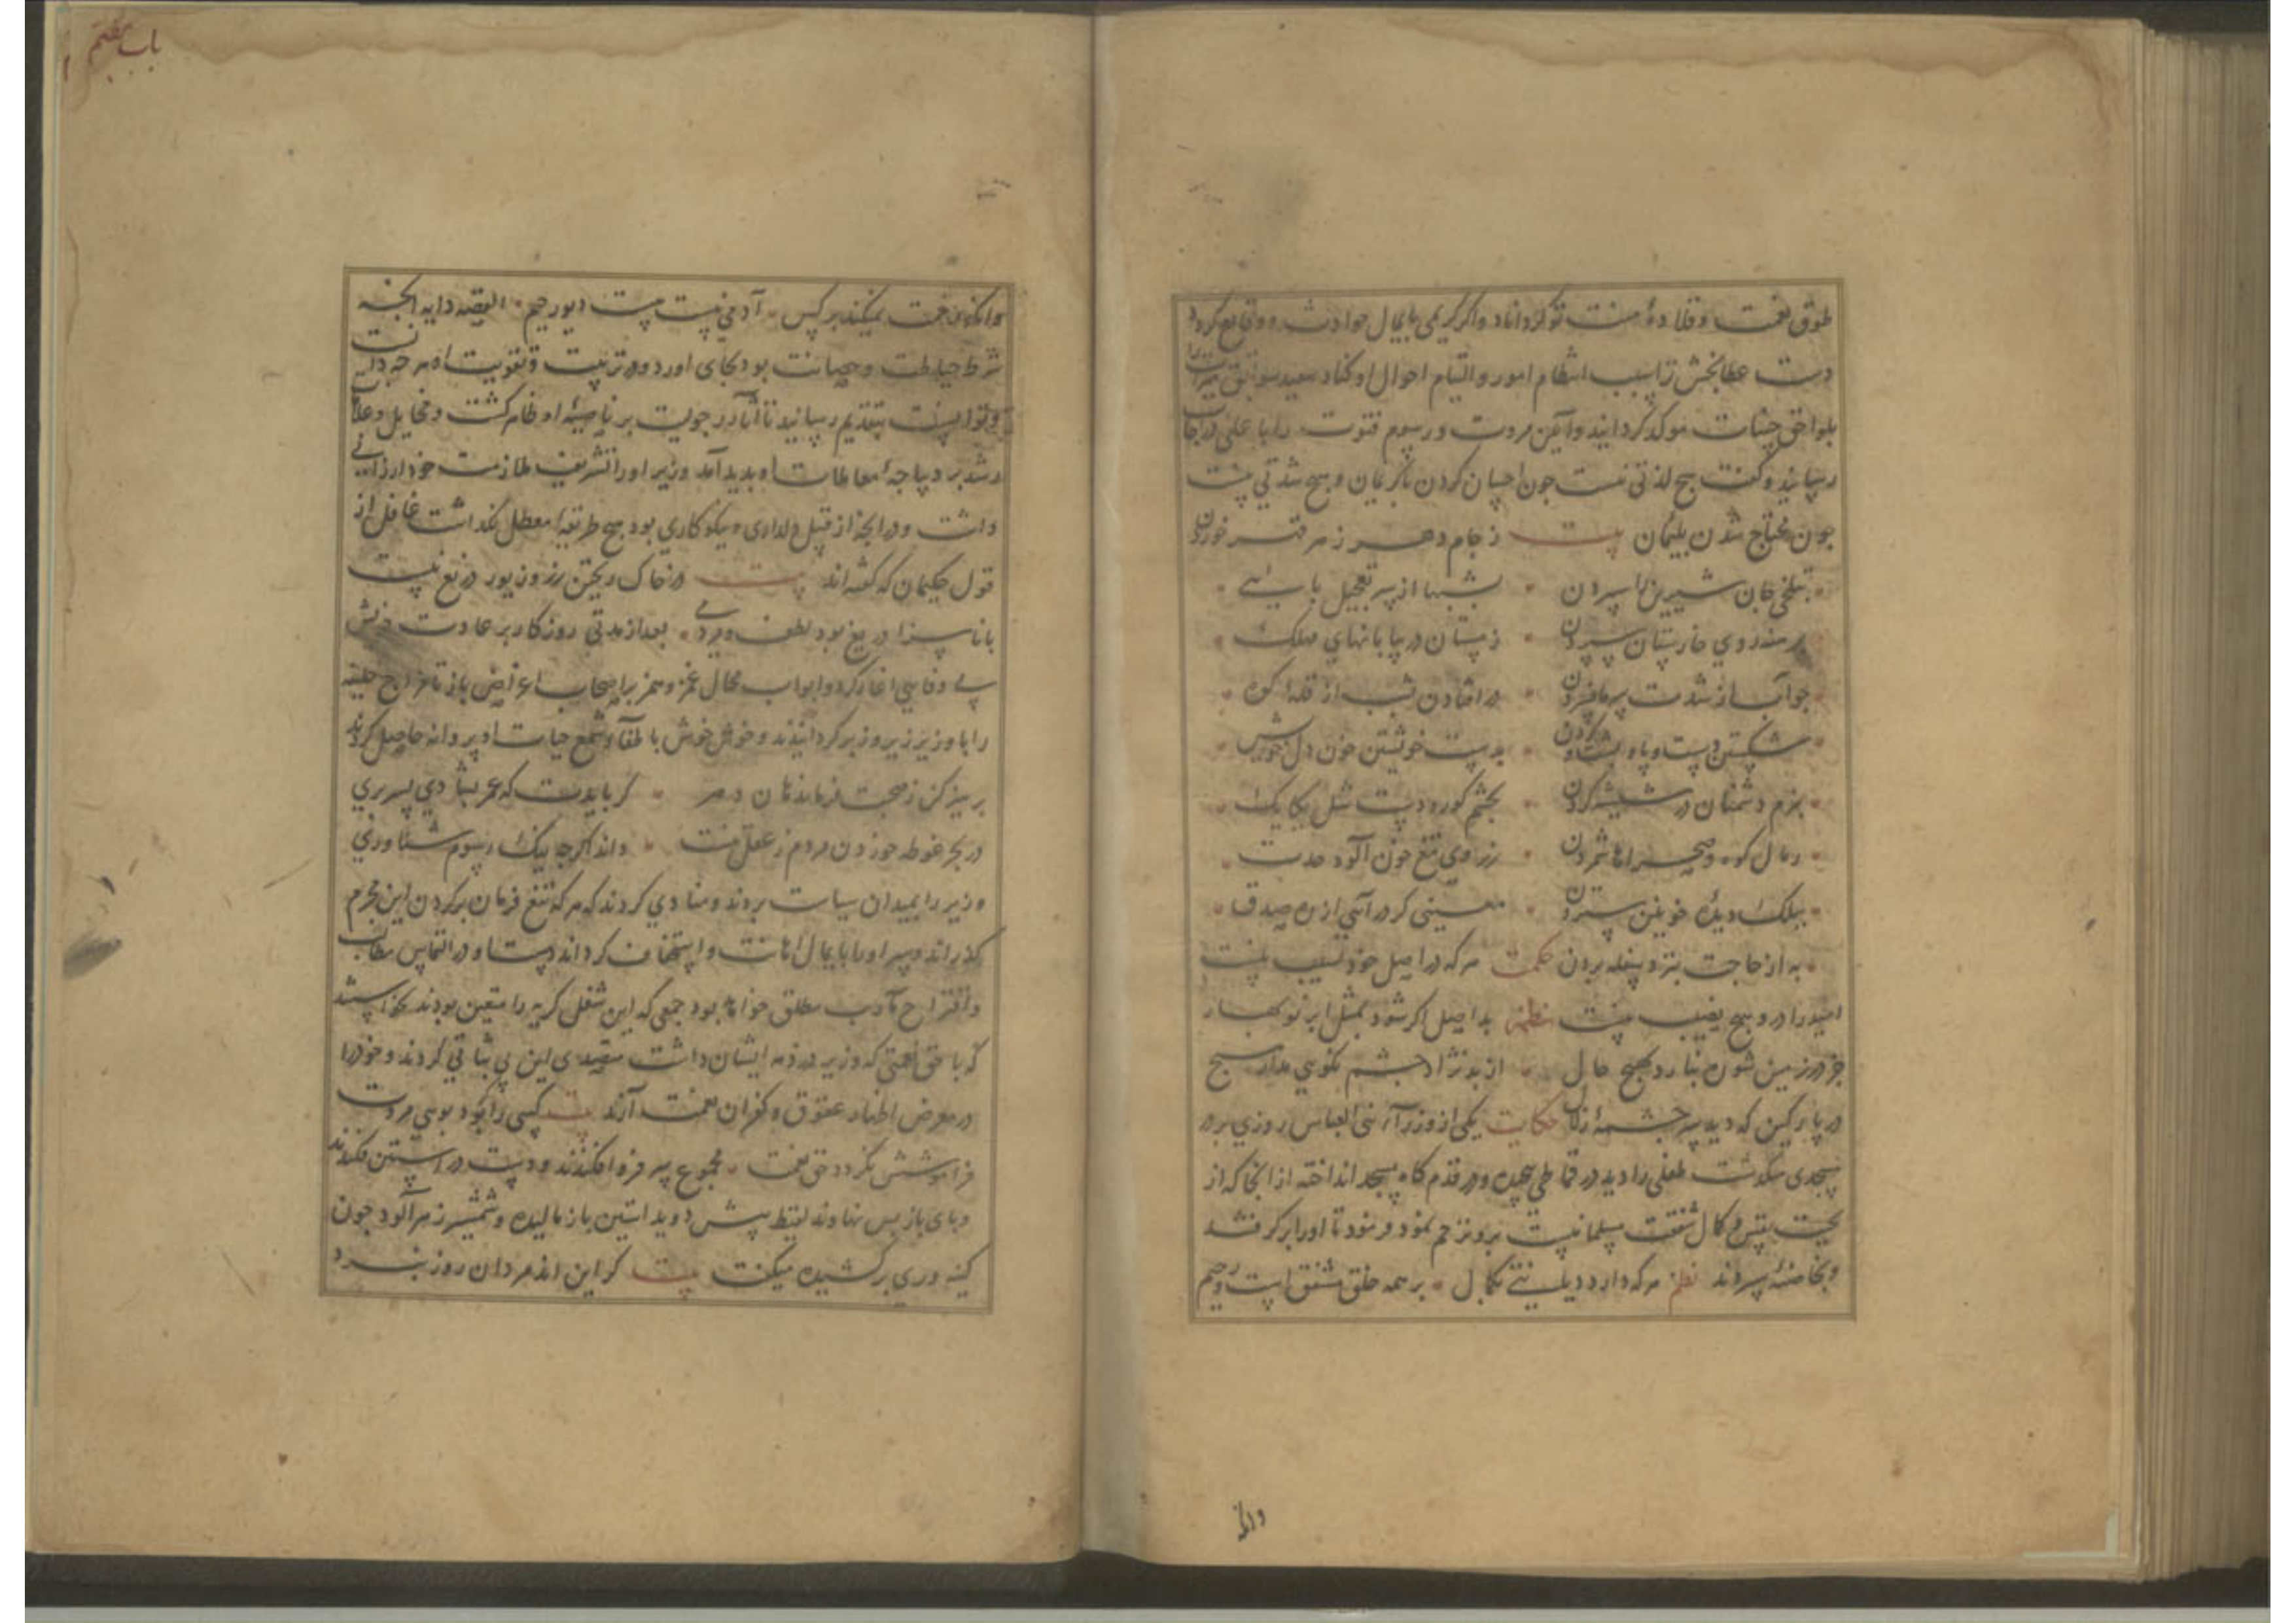 طوق نعمت و قلادهٔ منت تو گرداناد واکر کریمی پایمال حوادث و وقایع کردد
دست عطابخش ترا سبب انتظام امور و التیام احوال او کناد سعید سوابق مبرات را
بلواحق حسنات موکد کردانید وآیین مروت و رسوم فتوت را با علی درجات
رسانید و گفت هیچ لذتی نیست جون احسان کردن با کریمان و هیچ شدتی نیست
جون محتاج شدن بلئیمان بیت ز جام دهر زهر قهر خوردن
بتلخی جان شیرین را سپردن بشبها از پی تعجیل پایی
برهنه روی خارستان سپردن زمستان در بیابانهای مهلک
جو آب از شدت سرما فسردن در افتادن شب از قلهٔ کوه
شکستن دست و پا و پشت و کردن بدست خویشتن خون دل خویش
بزم دشمنان در شیشه کردن بجشم کور و دست شل یکایک
رمال کوه و صحرا را شمردن ز روی تیغ خون آلود حدت
ببلک دیدهٔ خونین ستردن معینی کر درآیی از ره صدق
به از حاجت بنزد سفله بردن حکمت هرکه در اصل خود نسیب نیست
امید را درو هیچ نصیب نیست نظم بد اصل اکر شود بمثل ابر نوبهار
جز در زمین شوره نبارد بهیچ حال از بد نژاد جشم نکویی مدار هیچ
در پارکین که دید سرجشمهٔ زلال حکایت یکی از وزرآء بنی العباس روزی بر در
مسجدی میکذشت طفلی را دید در قماطی پیچیده و در قدم کاه مسجد انداخته از انجا که از
کمال شفقت مسلمانیست برو ترحم نمود و فرمود تا او را برکرفتند
و بحاضنه سپردند نظم هرکه دارد دیانتی بکمال بر همه خلق مشفق است و رحیم
وانکه
باب هفتم
وانکه رحمت نمیکند بر کس آدمی نیست هست دیو رجیم القصه دایه انجه
شرط حیاطت و صیانت بود بجای اورد و در تربیت و تقویت او هرجه دانست
و توانست بتقدیم رسانید تا آثار رجولیت بر ناصیهٔ او ظاهر کشت و مخایل و علامات
رشد بر دیباجهٔ معاملات او بدید آمد وزیر او را تشریف ملازمت خود ارزانی
داشت و در انجه از قبیل دلداری و نیکوکاری بود هیچ طریقه معطل نکذاشت غافل از
قول حکیمان که کفته‌اند بیت در خاک ریختن زر و زیور دریغ نیست
با ناسزا دریغ بود لطف و مردمی بعد از مدتی روزکار بر عادت خویش
بی وفایی آغاز کرد و ابواب مجال غمز و همز بر اصحاب اغراض باز تا مزاج خلیفه
را با وزیر زیر و زبر کردانیدند و خوش خوش باطفآء شمع حیات او پروانه حاصل کردند
پرهیز کن ز صحبت فرماندهان دهر کر بایدت که عمر بشادی بسر بری
در بحر غوطه خوردن مردم ز عقل نیست داند اکرجه نیک رسوم شناوری
وزیر را بمیدان سیاست بردند و منادی کردند که هرکه تیغ فرمان بر کردن این مجرم
بکذراند و سر او را پایمال اهانت و استخفاف کرداند دست او در التماس مطالب
و اقتراح مآرب مطلق خواهد بود جمعی که این شغل کریه را متعین بودند نخواستند
که با حق نعمتی که وزیر در ذمه ایشان داشت متصدی این بی شباتی کردند و خود را
در معرض اظهار عقوق و کفران نعمت آرند بیت کسی را کو بود بوی مروت
فراموشش نکردد حق نعمت مجموع سر فرو افکندند و دست در آستین فکندند
و پای باز پس نهادند لقیط پیش دوید استین باز مالیده و شمشیر زهر آلود جون
کینه وری برکشیده میکفت بیت کر این اندر مردان روز نبرد